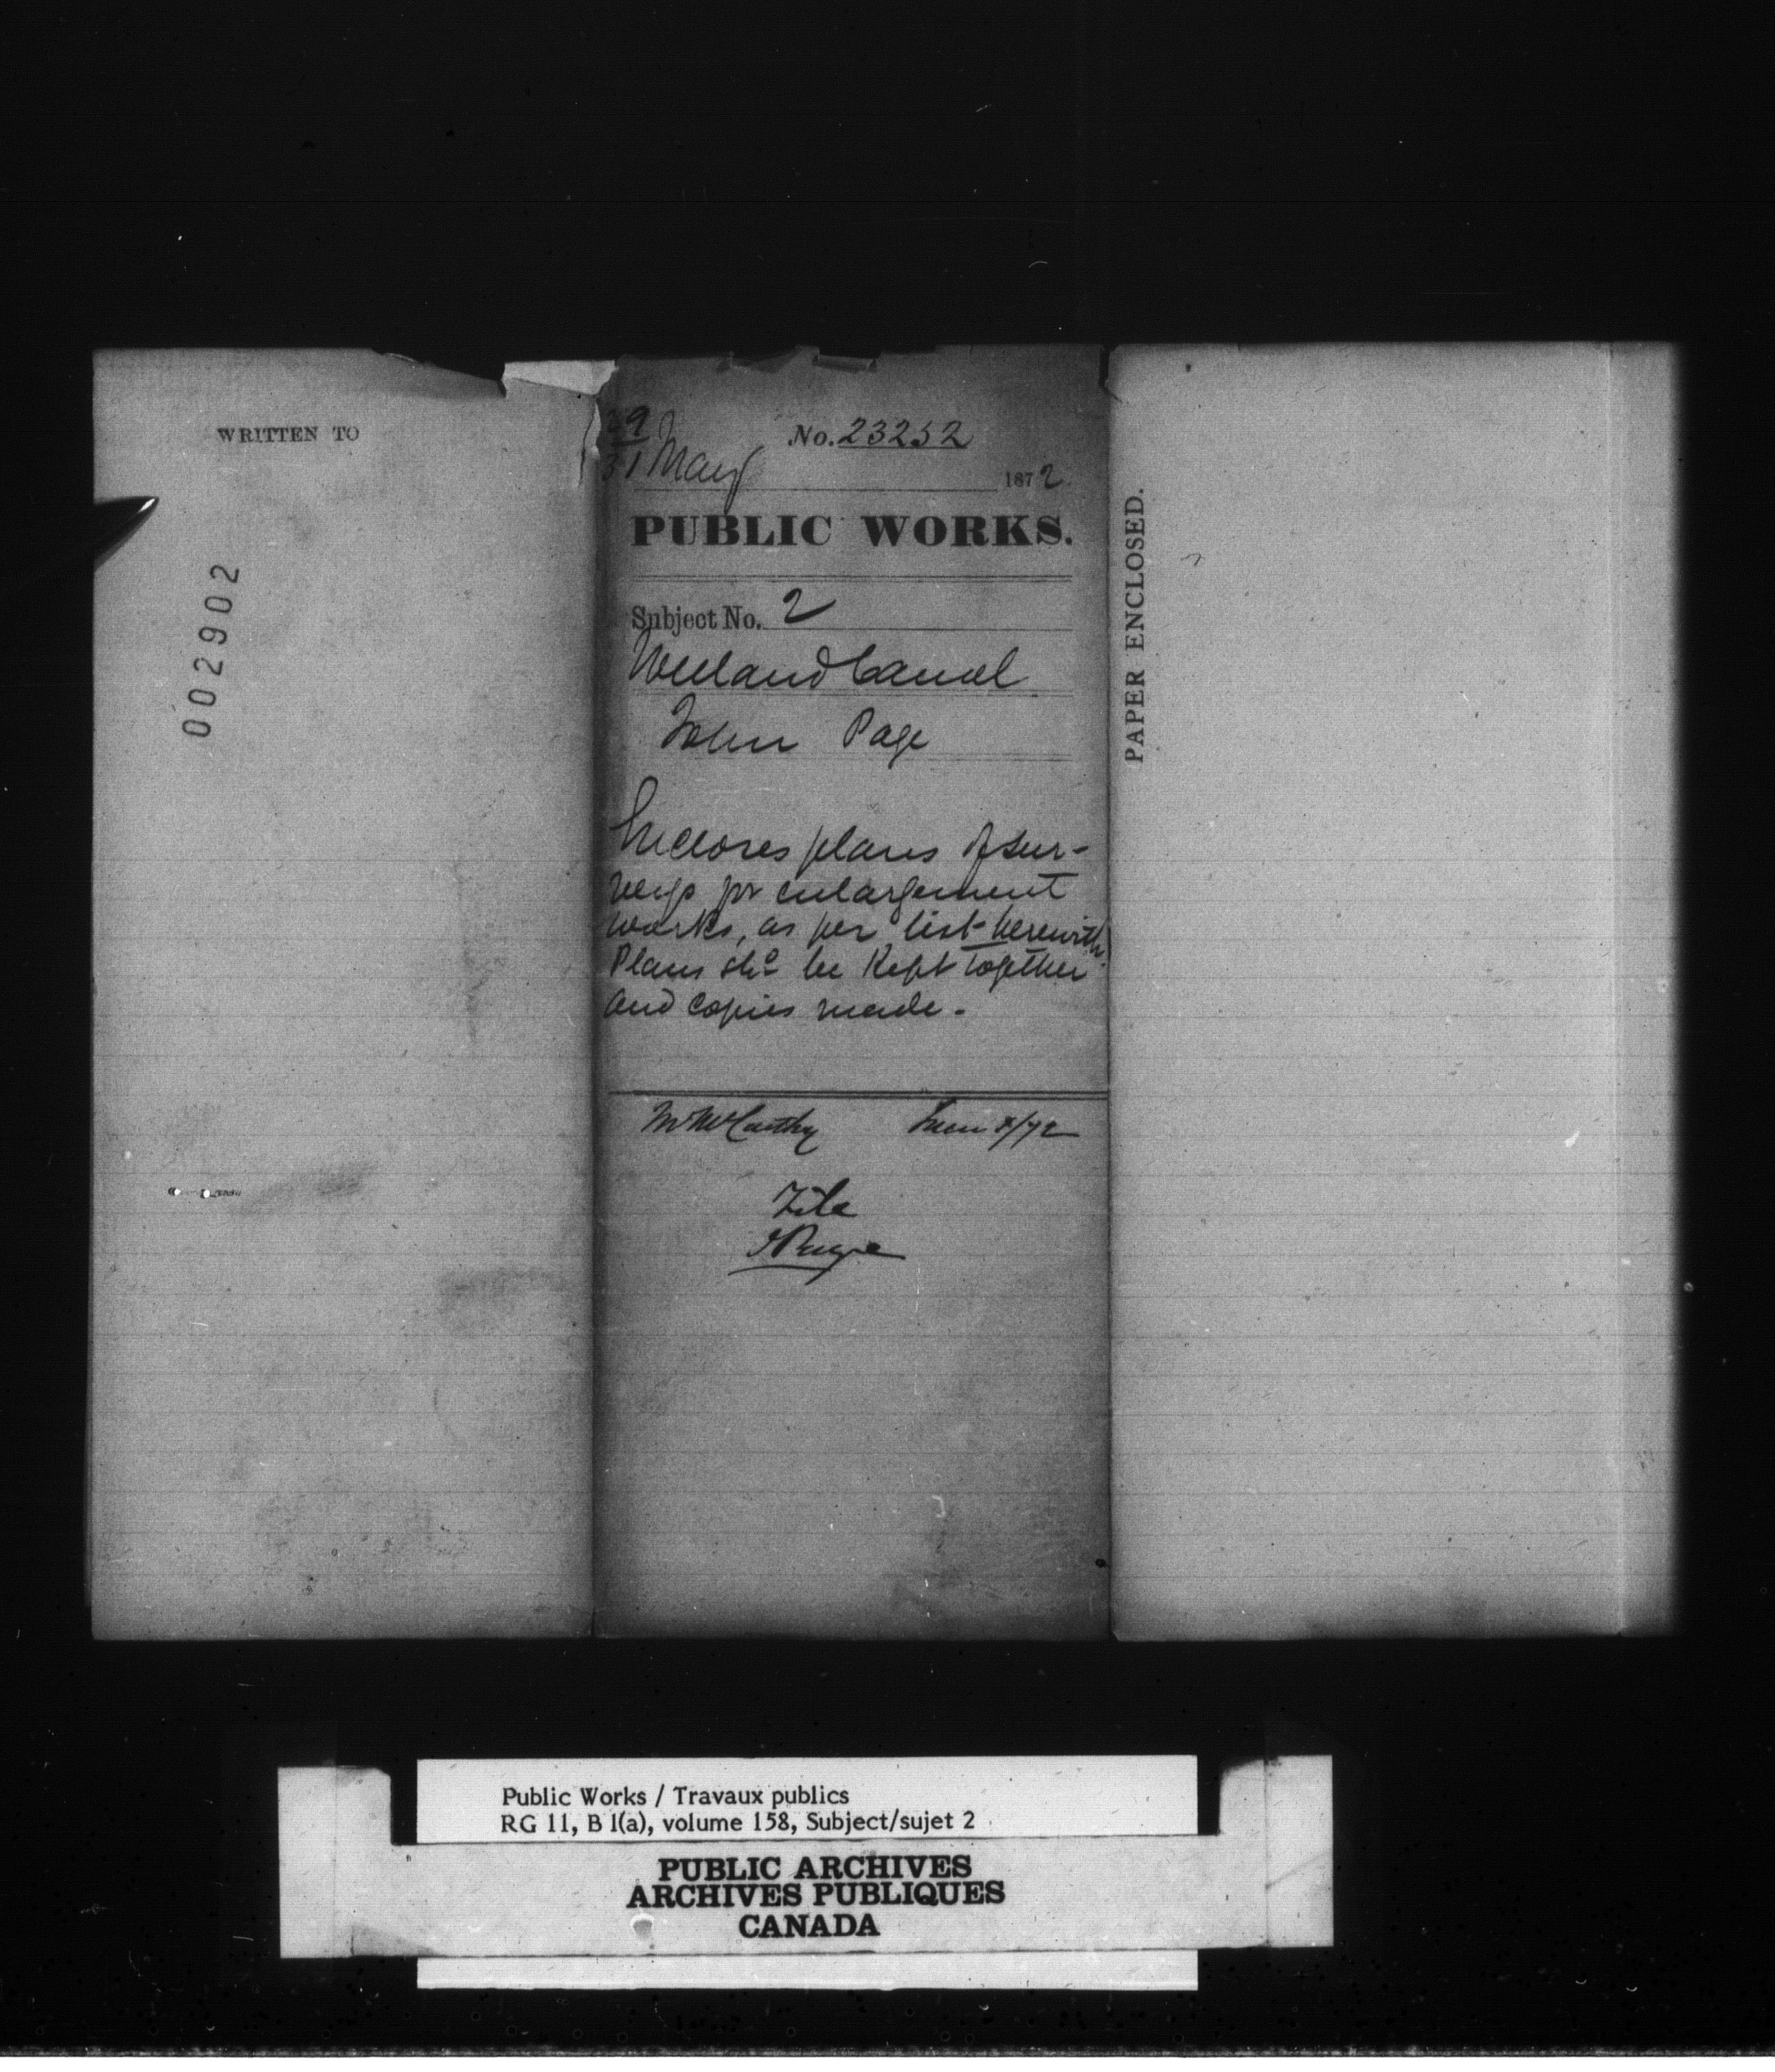 WRITTEN TO
002902
29
31 May
No. 23252
1872
PUBLIC WORKS.
Subject No. 2
Welland Canal
John Page
Encloses plans of sur-
veys for enlargement
works, as per list herewith.
Plans shd be kept together
and copies made.
Mr McCarthy June 8/72
File
JPage
PAPER ENCLOSED.
Public Works / Travaux publics
RG 11, B 1(a), volume 158, Subject/sujet 2
PUBLIC ARCHIVES
ARCHIVES PUBLIQUES
CANADA